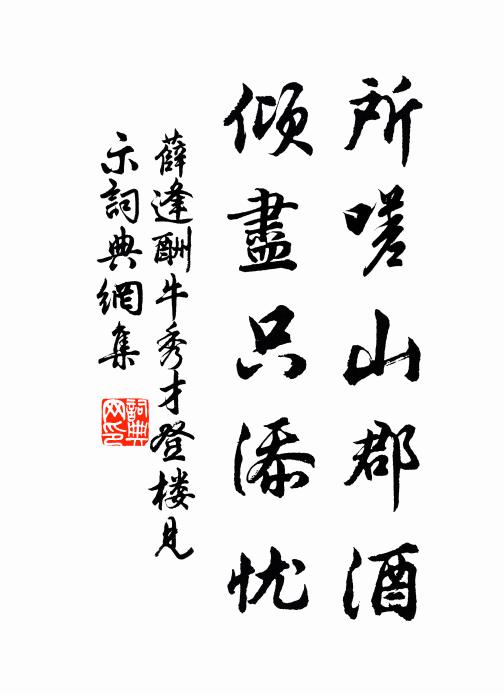 所嗟山郡酒
傾盡只添忧
薛逢酬牛秀才登楼見
示詞典網集
詞典
网印